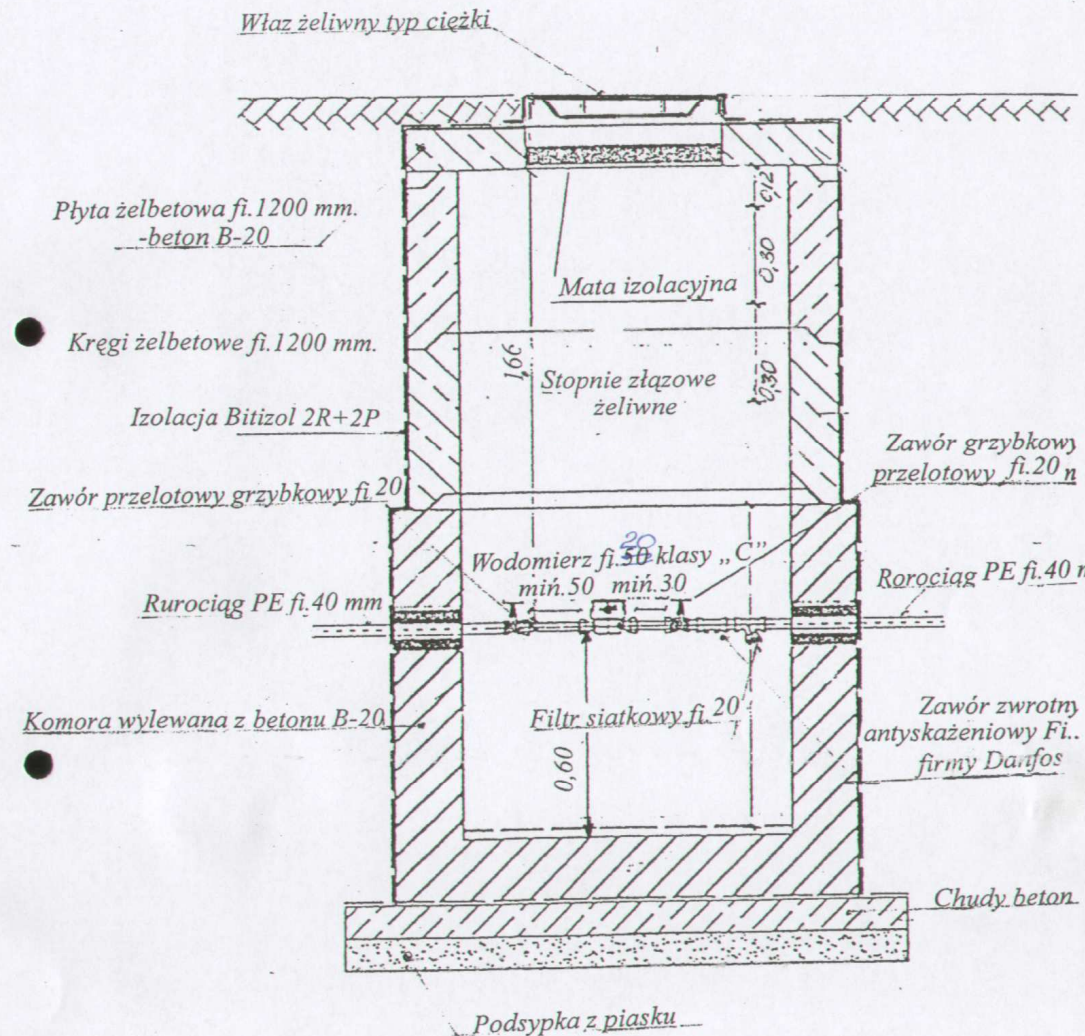 Właz żeliwny typ ciężki
Płyta żelbetowa fi.1200 mm.
-beton B-20
0,12
0,30
Mata izolacyjna
Kręgi żelbetowe fi.1200 mm.
1,66
Stopnie złązowe
żeliwne
0,30
Izolacja Bitizol 2R+2P
Zawór grzybkowy
przelotowy fi.20
Zawór przelotowy grzybkowy fi 20
20
Wodomierz fi.50 klasy „C”
miń.50 miń.30
Rurociąg PE fi.40 mm
Rorociąg PE fi.40
Komora wylewana z betonu B-20
Filtr siatkowy fi.20
0,60
Zawór zwrotny
antyskażeniowy Fi..
firmy Danfos
Chudy beton
Podsypka z piasku